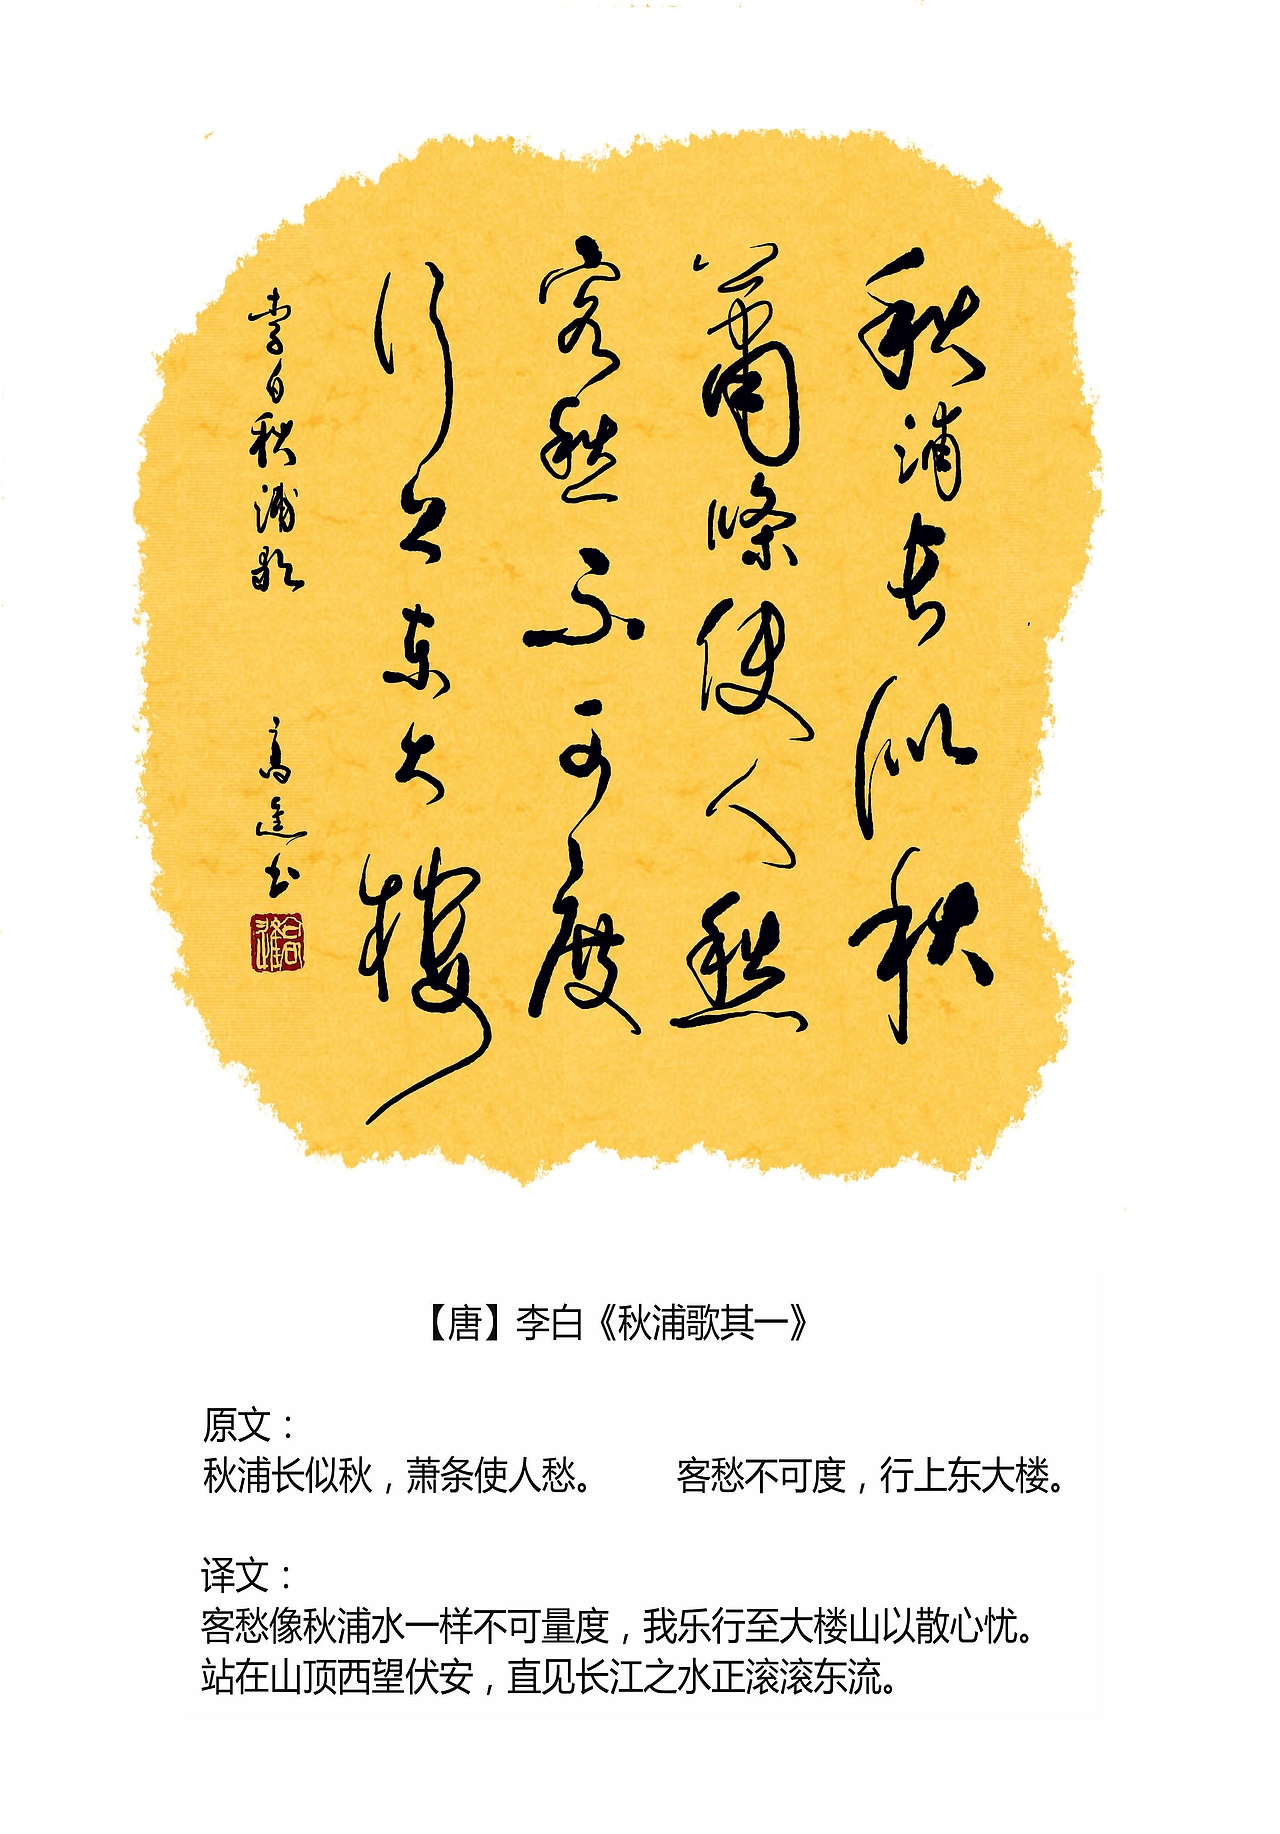 秋浦长似秋
蕭條使人愁
客愁不可度
行上东大樓
李白秋浦歌
高進书
【唐】李白《秋浦歌其一》
原文：
秋浦长似秋，萧条使人愁。 客愁不可度，行上东大楼。
译文：
客愁像秋浦水一样不可量度，我乐行至大楼山以散心忧。
站在山顶西望伏安，直见长江之水正滚滚东流。